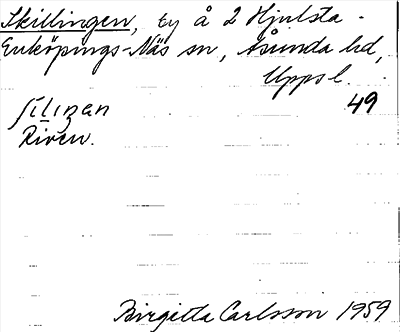 Skillingen, by å 2 Hjulsta -
Enköpings-Näs sn, Åsunda hd,
Uppsl.
ʃiliŋən 49
Riven.
Birgitta Carlsson 1959